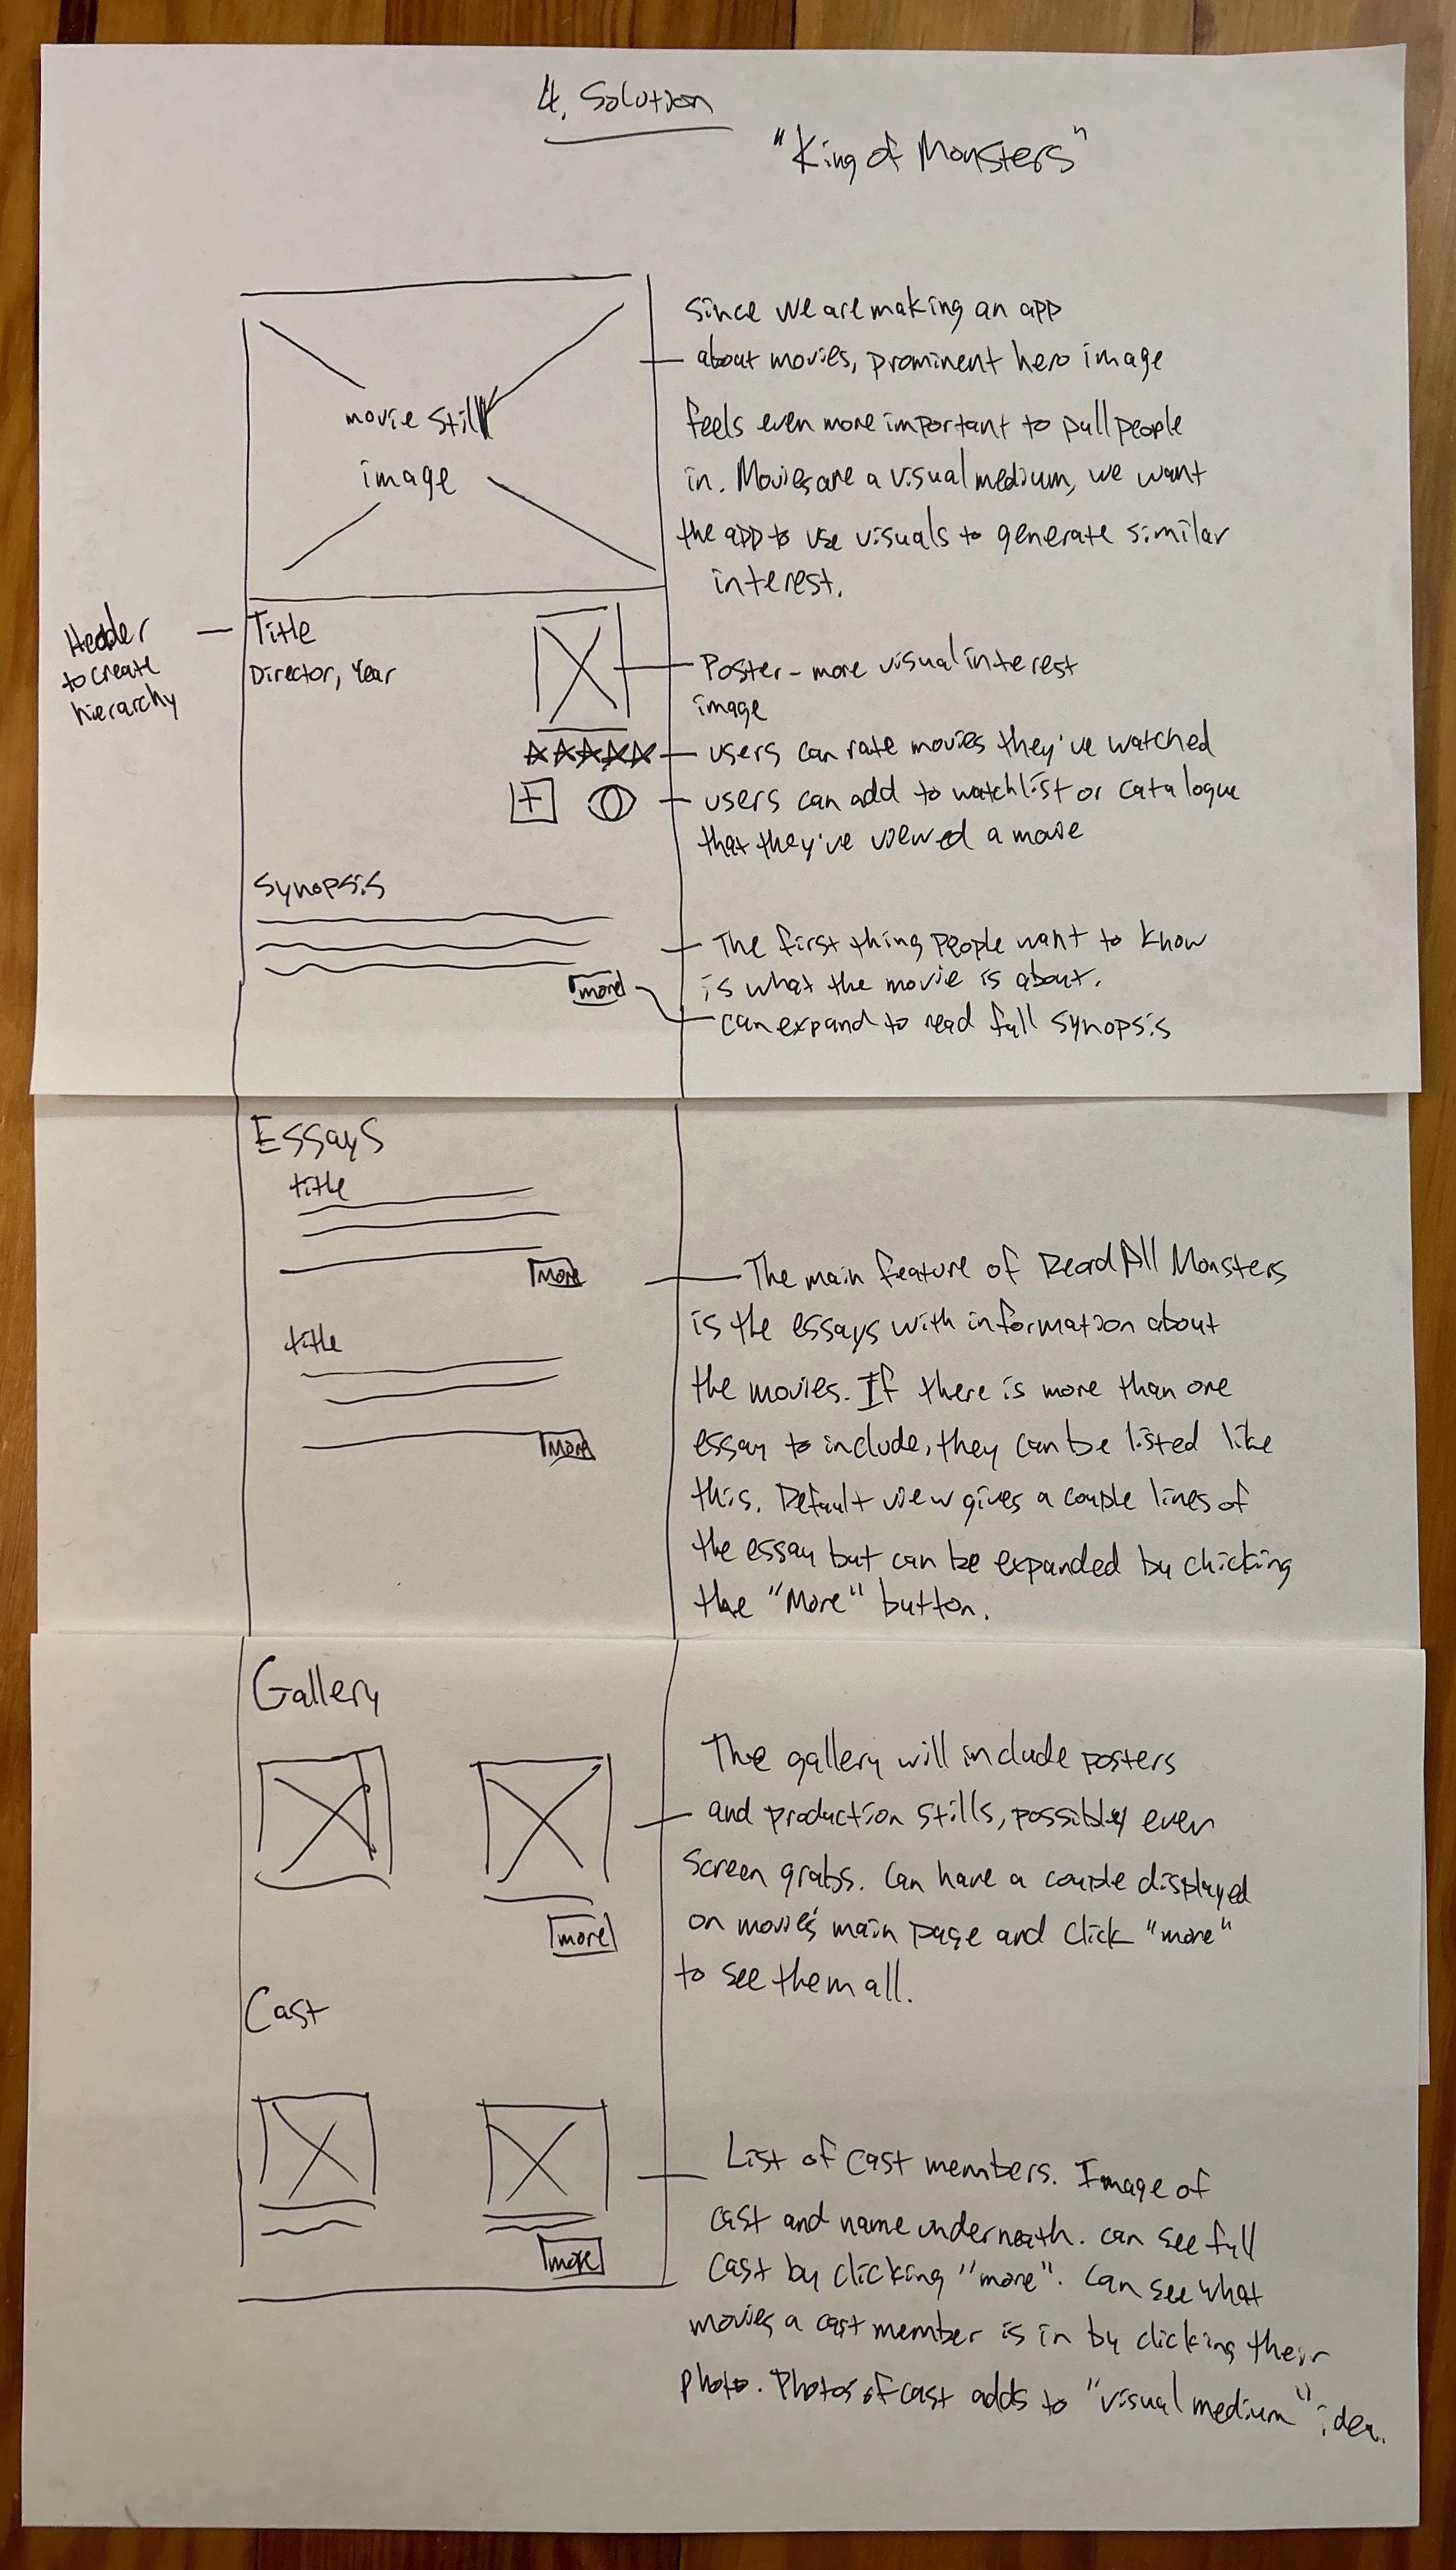 4. Solution
"King of Monsters"
movie still
image
Since we are making an app
about movies, prominent hero image
feels even more important to pull people
in. Movies are a visual medium, we want
the app to use visuals to generate similar
interest.
Header
to create
hierarchy
Title
Director, Year
Poster - more visual interest
image
users can rate movies they've watched
+
users can add to watchlist or catalogue
that they've viewed a movie
Synopsis
more
The first thing people want to know
is what the movie is about.
can expand to read full synopsis
Essays
title
More
title
More
The main feature of Read All Monsters
is the essays with information about
the movies. If there is more than one
essay to include, they can be listed like
this. Default view gives a couple lines of
the essay but can be expanded by clicking
the "More" button.
Gallery
more
The gallery will include posters
and production stills, possibly even
screen grabs. Can have a couple displayed
on movie's main page and click "more"
to see them all.
Cast
more
List of cast members. Image of
cast and name underneath. can see full
cast by clicking "more". Can see what
movies a cast member is in by clicking their
photo. Photos of cast adds to "visual medium" idea.